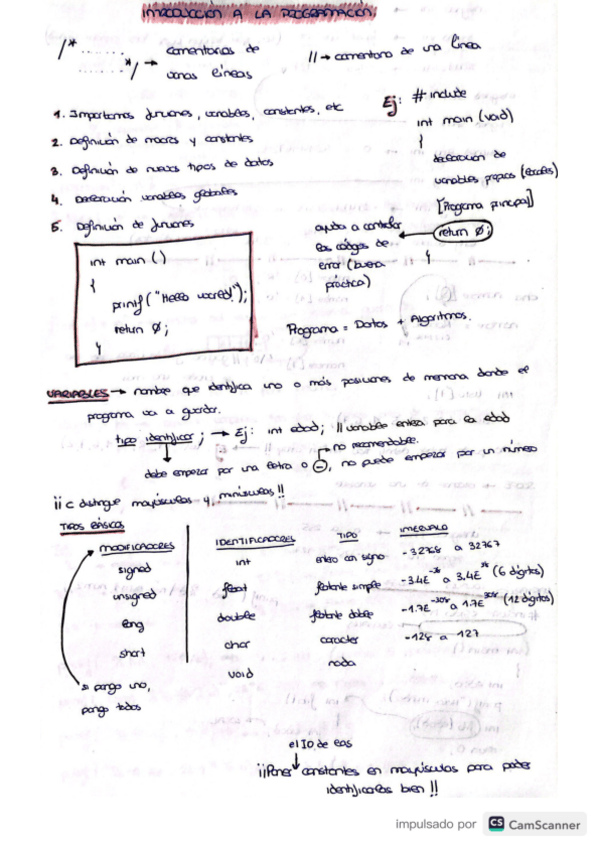 INTRODUCCIÓN A LA PROGRAMACIÓN
/* ....... 
....... */ → comentarios de
varias líneas
// → comentario de una línea
1. Importamos funciones, variables, constantes, etc
2. Definición de macros y constantes
3. Definición de nuevos tipos de datos
4. Declaración variables globales
5. Definición de funciones
Ej: #include
int main (void)
{
declaración de
variables propias (locales)
[Programa principal]
return 0;
}
ayuda a controlar
los códigos de
error (buena
práctica)
int main ()
{
printf ("Hello world!");
return 0;
}
Programa = Datos + Algoritmos.
VARIABLES → nombre que identifica uno o más posiciones de memoria donde el
programa va a guardar.
tipo identificar; → Ej: int edad; // variable entera para la edad
→ no recomendable.
debe empezar por una letra o _, no puede empezar por un número
¡¡ C distingue mayúsculas y minúsculas !!
TIPOS BÁSICOS
MODIFICADORES
signed
unsigned
long
short
si pongo uno,
pongo todos
IDENTIFICADORES
int
float
double
char
void
TIPO
entero con signo
flotante simple
flotante doble
caracter
nada
INTERVALO
-32768 a 32767
-3.4E⁻³⁸ a 3,4E³⁸ (6 dígitos)
-1.7E⁻³⁰⁸ a 1.7E³⁰⁸ (12 dígitos)
-128 a 127
el ID de las
¡¡Poner constantes en mayúsculas para poder
identificarlas bien !!
impulsado por CS CamScanner